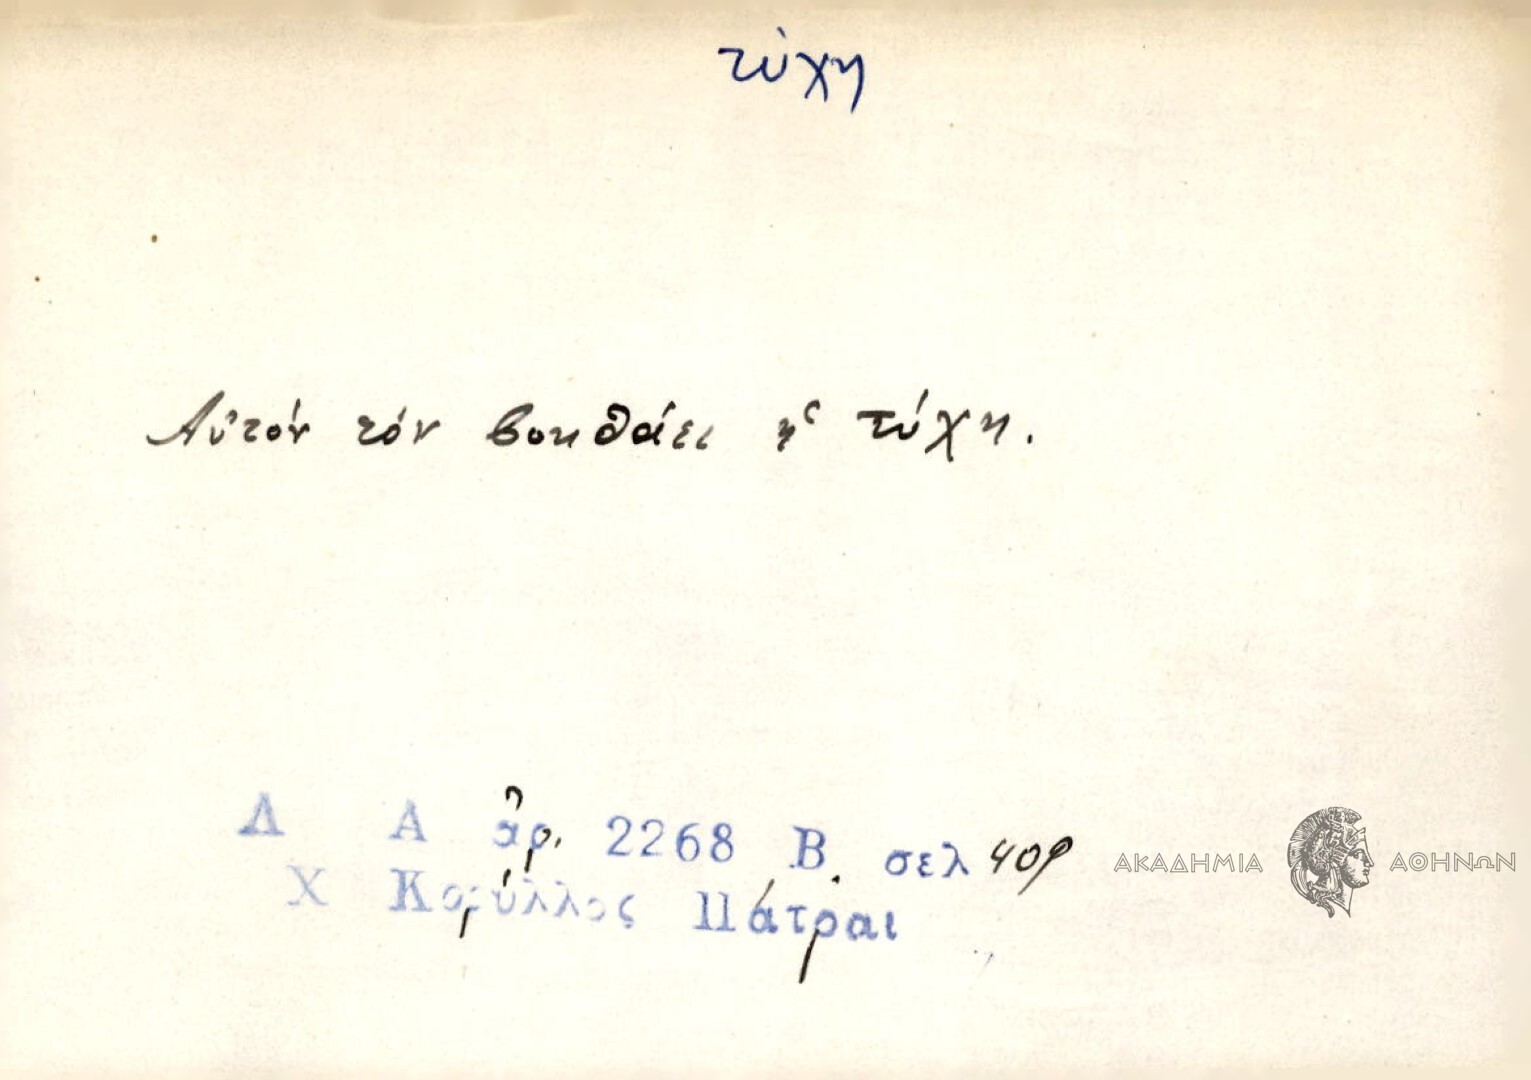 τύχη
Αὐτόν τόν βοηθάει ἡ τύχη.
Λ Α ἀρ. 2268 Β. σελ 409
Χ Κορύλλος Πάτραι
ΑΚΑΔΗΜΙΑ ΑΘΗΝΩΝ